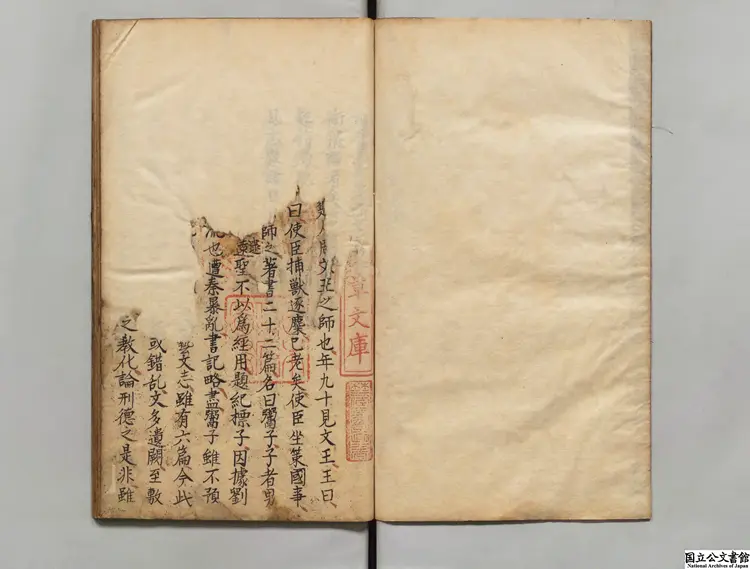 草文庫
文王之師也年九十見文王王曰
曰使臣捕獸逐麋已老矣使臣坐策國事
師之著書二十二篇名曰鬻子子者男
聖不以爲經用題紀標子因據劉
也遭秦暴亂書記略盡鬻子雖不預
藝文志雖有六篇今此
或錯乱文多遺闕至敷
之教化論刑德之是非雖
国立公文書館
National Archives of Japan